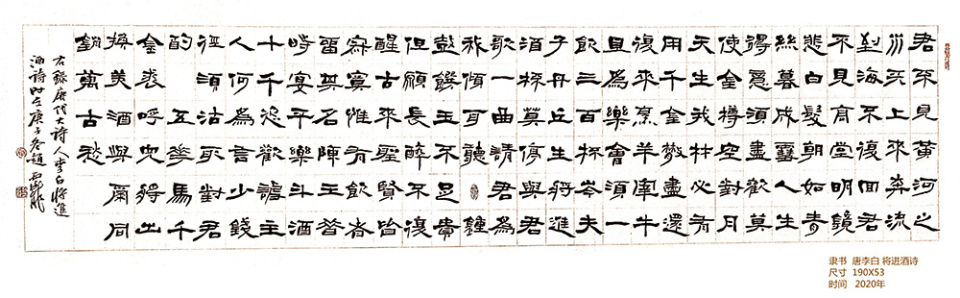 君不見黄河之
水天上來奔流
到海不復回君
不見高堂明鏡
悲白髮朝如青
絲暮成雪人生
得意須盡歡莫
使金樽空對月
天生我材必有
用千金散盡還
復來烹羊宰牛
且為樂會須一
飲三百杯岑夫
子丹丘生將進
酒杯莫停與君
歌一曲請君為
我傾耳聽鐘
鼓饌玉不足貴
但願長醉不復
醒古來聖賢皆
寂寞惟有飲者
留其名陳王昔
時宴平樂斗酒
十千恣歡謔主
人何為言少錢
徑須沽取對君
酌五花馬千
金裘呼兒將出
換美酒與爾同
銷萬古愁
右錄唐代大詩人李白將進
酒詩時在庚子冬趙西
隶书 唐李白 将进酒诗
尺寸 190X53
时间 2020年